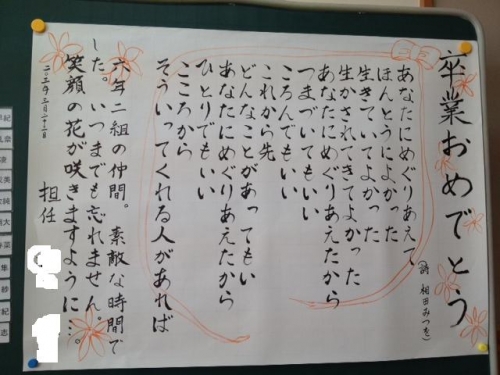 卒業おめでとう
(詩 相田みつを)
あなたにめぐりあえて
ほんとうによかった
生きていてよかった
生かされてきてよかった
あなたにめぐりあえたから
つまづいてもいい
ころんでもいい
これから先
どんなことがあってもい
あなたにめぐりあえたから
ひとりでもいい
こころから
そういってくれる人があれば
六年二組の仲間。素敵な時間で
した。いつまでも忘れません。
笑顔の花が咲きますように…。
担任